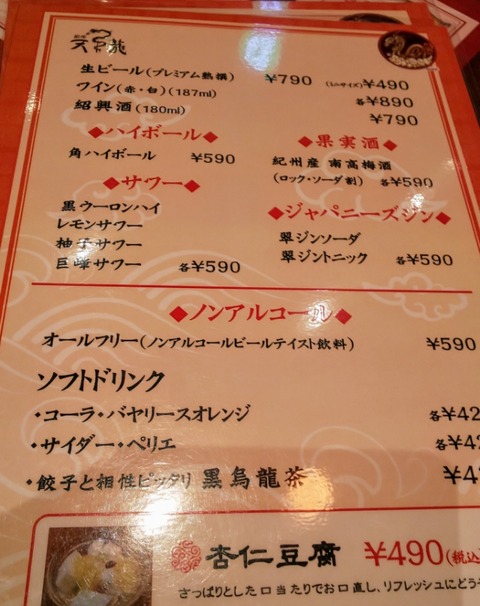 天龍
生ビール(プレミアム熟撰) ¥790 (ミニサイズ)¥490
ワイン(赤・白)(187ml) 各¥890
紹興酒(180ml) ¥790
◆ハイボール◆
角ハイボール ¥590
◆果実酒◆
紀州産 南高梅酒
(ロック・ソーダ割) 各¥590
◆サワー◆
黒ウーロンハイ
レモンサワー
柚子サワー
巨峰サワー 各¥590
◆ジャパニーズジン◆
翠ジンソーダ
翠ジントニック 各¥590
◆ノンアルコール◆
オールフリー(ノンアルコールビールテイスト飲料) ¥590
ソフトドリンク
・コーラ・バヤリースオレンジ 各¥42
・サイダー・ペリエ 各¥42
・餃子と相性ピッタリ 黒烏龍茶 ¥4
杏仁豆腐 ¥490(税込)
さっぱりとした口当たりでお口直し、リフレッシュにどう